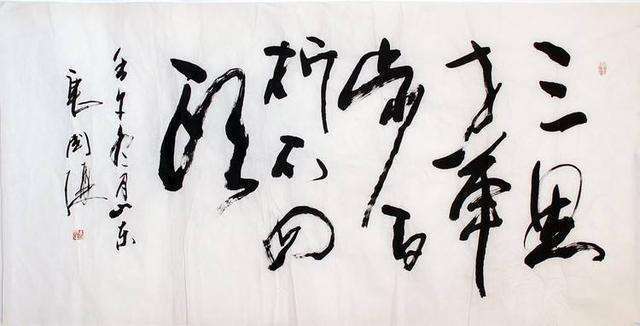 三思
方举
步百
折不回
头
壬午 月山东
国